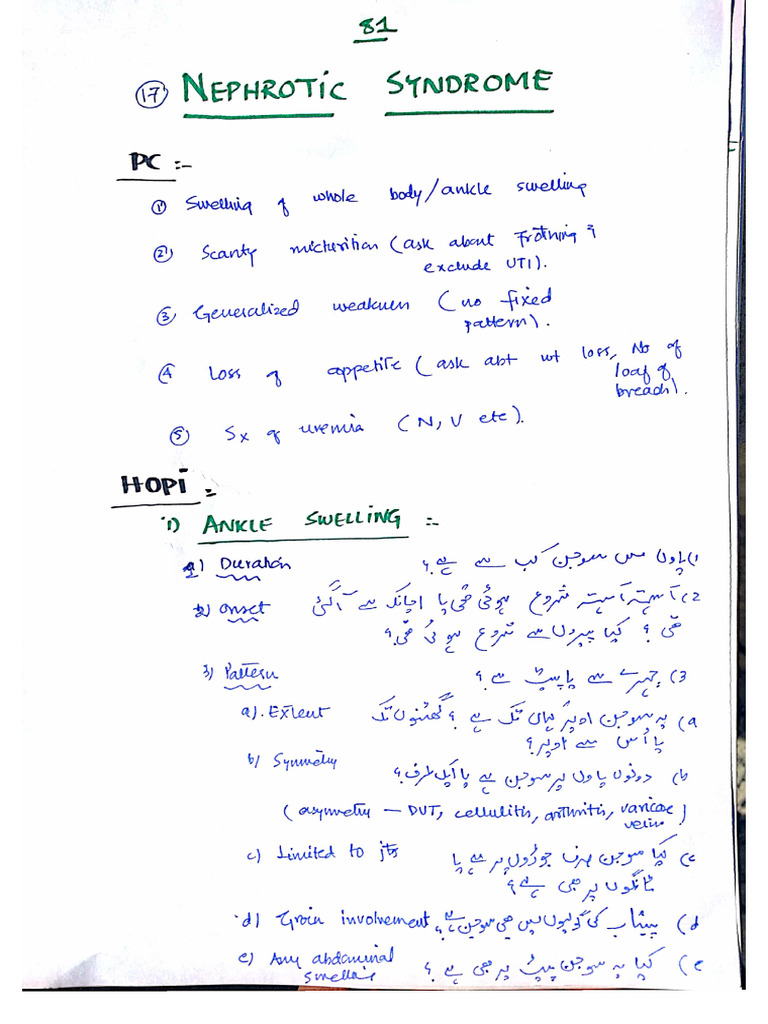 81
(17) NEPHROTIC SYNDROME
PC :-
(1) Swelling of whole body/ankle swelling
(2) Scanty micturition (ask about Frothning &
exclude UTI).
(3) Generalized weaknen (no fixed
pattern).
(4 Loss of appetite (ask abt wt loss, No of
loaf of
breach).
(5) Sx of uremia (N, V etc).
HOPI :-
1) ANKLE SWELLING :-
1) Duration 1) پاوں میں سوجن کب سے ہے ؟
2) onset 2) آہستہ آہستہ شروع ہوئی تھی یا اچانک سے آگئی
تھی ؟ کیا پیروں سے شروع ہوئی تھی ؟
3) Pattern 3) چہرے سے یا پیٹ سے ؟
a). Extent a) یہ سوجن اوپر کہاں تک ہے ؟ گھٹنوں تک
یا اُس سے اوپر ؟
b) Symmetry b) دونوں پاوں پر سوجن ہے یا ایک طرف ؟
(asymmetry — DVT, cellulitis, arthritis, varicose
veins)
c) Limited to jts c) کیا سوجن صرف جوڑوں پر ہے یا
ٹانگوں پر بھی ہے ؟
d) Groin involvement d) پیشاب کی گولیوں میں بھی سوجن ہے ؟
e) Any abdominal e) کیا یہ سوجن پیٹ پر بھی ہے ؟
swelling